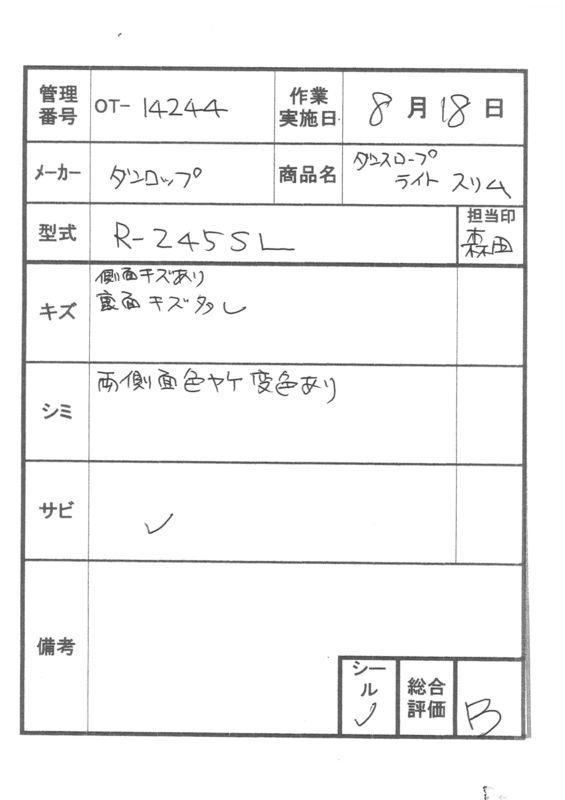 管理番号 OT-14244 作業実施日 8月18日
メーカー ダンロップ 商品名 ダンスロープ
ライト スリム
型式 R-245SL 担当印
森田
キズ 側面キズあり
裏面キズ多し
シミ 両側面色ヤケ変色あり
サビ ✓
備考
シール ✓ 総合評価 B